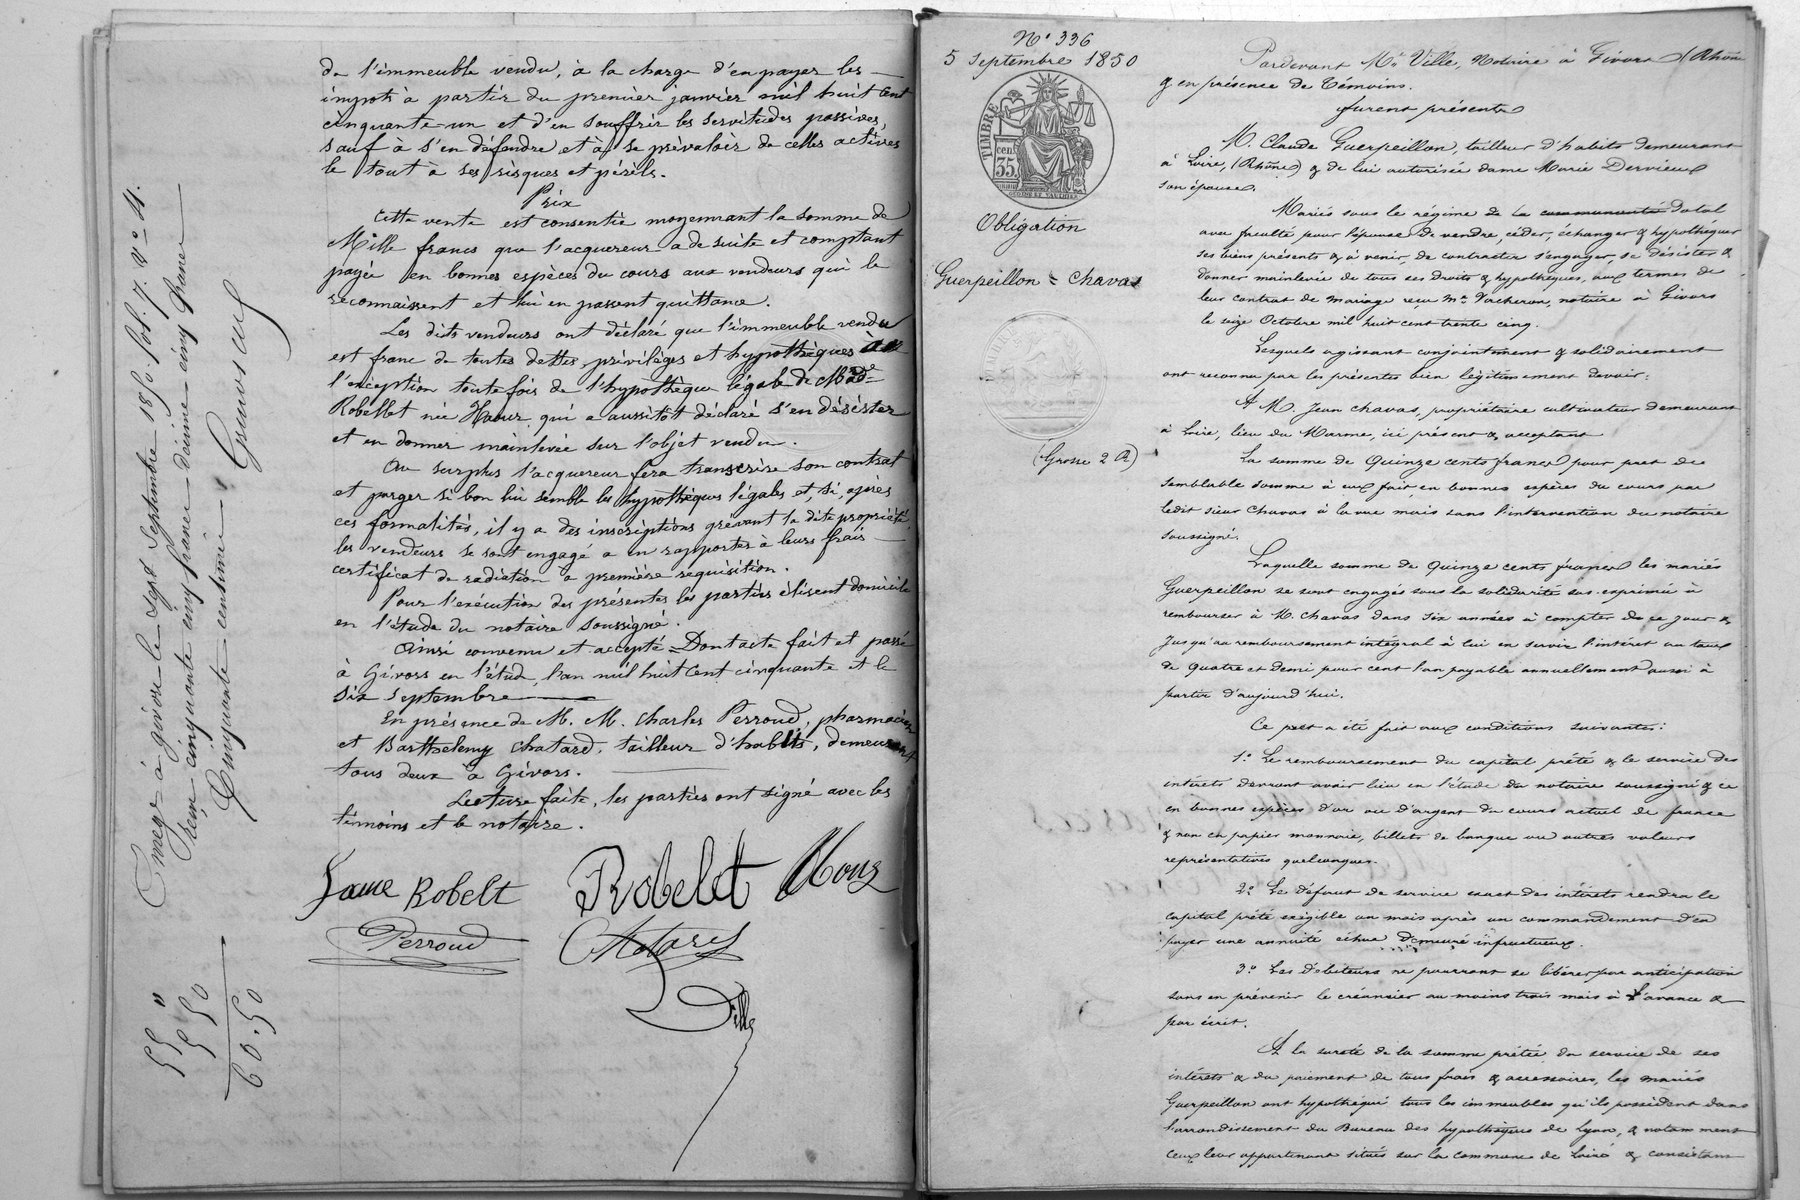 de l'immeuble vendu, à la charge d'en payer les
impots à partir du premier janvier mil huit cent
cinquante-un et d'en souffrir les servitudes passives,
sauf à s'en défendre et à se prévaloir de celles actives
le tout à ses risques et périls.
Prix
Cette vente est consentie moyennant la somme de
Mille francs que l'acquereur a de suite et comptant
payée en bonnes espèces du cours aux vendeurs qui le
reconnaissent et lui en passent quittance.
Les dits vendeurs ont déclaré que l'immeuble vendu
est franc de toutes dettes, privilèges et hypothèques à
l'exception toute fois de l'hypothèque légale de Made
Robellet née Haour, qui a aussitôt déclaré s'en désister
et en donner mainlevée sur l'objet vendu.
Au surplus l'acquereur fera transcrire son contrat
et purger si bon lui semble les hypothèques légales et, si, après
ces formalités, il y a des inscriptions grévant la dite propriété,
les vendeurs se sont engagé a en rapporter à leurs frais
certificat de radiation a première requisition.
Pour l'exécution des présentes les parties élisent domicile
en l'étude du notaire soussigné.
Ainsi convenu et accepté. Dont acte fait et passé
à Givors en l'étude, l'an mil huit cent cinquante et le
six septembre
En présence de M. M. Charles Perroud, pharmacien
et Barthelemy Chatard, tailleur d'habits, demeurant
tous deux à Givors.
Lecture faite, les parties ont signé avec les
témoins et le notaire.
Robelt Robelet
Perroud Chatard
Ville
à givors le sept Septembre 1850. fol. 7. Vo 4.
cinquante cinq francs décime cinq francs
Cinquante centimes
55 "
5 50
60.50
No 336
5 Septembre 1850
TIMBRE
35 cen
Obligation
Guerpeillon = Chavas
(Grosse 2 R)
Pardevant Me Ville, Notaire à Givors (Rhône
& en présence de Témoins.
furent présents
M. Claude Guerpeillon, tailleur d'habits demeurant
à Loire, (Rhône) & de lui autorisée dame Marie Dervieux
son épouse.
Mariés sous le régime de la communauté Dotal
avec faculté pour l'épouse De vendre, céder, échanger & hypothéquer
ses biens présents & à venir, de contracter s'engager, se désister &
donner mainlevée de tous ses Droits & hypothèques, aux termes de
leur contrat de mariage reçu Me Vacheron, notaire à Givors
le seize Octobre mil huit cent trente cinq.
Lesquels agissant conjointement & solidairement
ont reconnu par les présentes bien légitimement devoir:
A M. Jean Chavas, propriétaire cultivateur demeurant
à Loire, lieu du Marme, ici présent & acceptant
La somme de Quinze cents francs pour pret de
semblable somme à eux fait, en bonnes espèces du cours par
ledit sieur Chavas à la vue mais sans l'intervention du notaire
soussigné.
Laquelle somme de Quinze cents francs les mariés
Guerpeillon se sont engagés sous la solidarité sus exprimée à
rembourser à M. Chavas dans six années à compter de ce jour &
jusqu'au remboursement intégral à lui en servir l'intérêt au taux
de quatre et demi pour cent l'an payable annuellement aussi à
partir d'aujourd'hui.
Ce pret a été fait aux conditions suivantes:
1.o Le remboursement du capital prêté & le service des
intérêts devront avoir lieu en l'étude du notaire soussigné & ce
en bonnes espèces d'or ou d'argent du cours actuel de france
& non en papier monnaie, billets de banque ou autres valeurs
représentatives quelconques.
2.o Le défaut de service exact des intérêts rendra le
capital prêté exigible un mois après un commandement d'en
payer une annuité échue Demeuré infructueux.
3.o Les Débiteurs ne pourront se libérer par anticipation
sans en prévenir le créancier au moins trois mois à l'avance &
par écrit.
A la sureté de la somme prêtée, du service de ses
intérêts & du paiement de tous frais & accessoires, les mariés
Guerpeillon ont hypothéqué tous les immeubles qu'ils possèdent dans
l'arrondissement du Bureau des hypothèques de Lyon, & notamment
ceux leur appartenant situés sur la commune de Loire & consistant